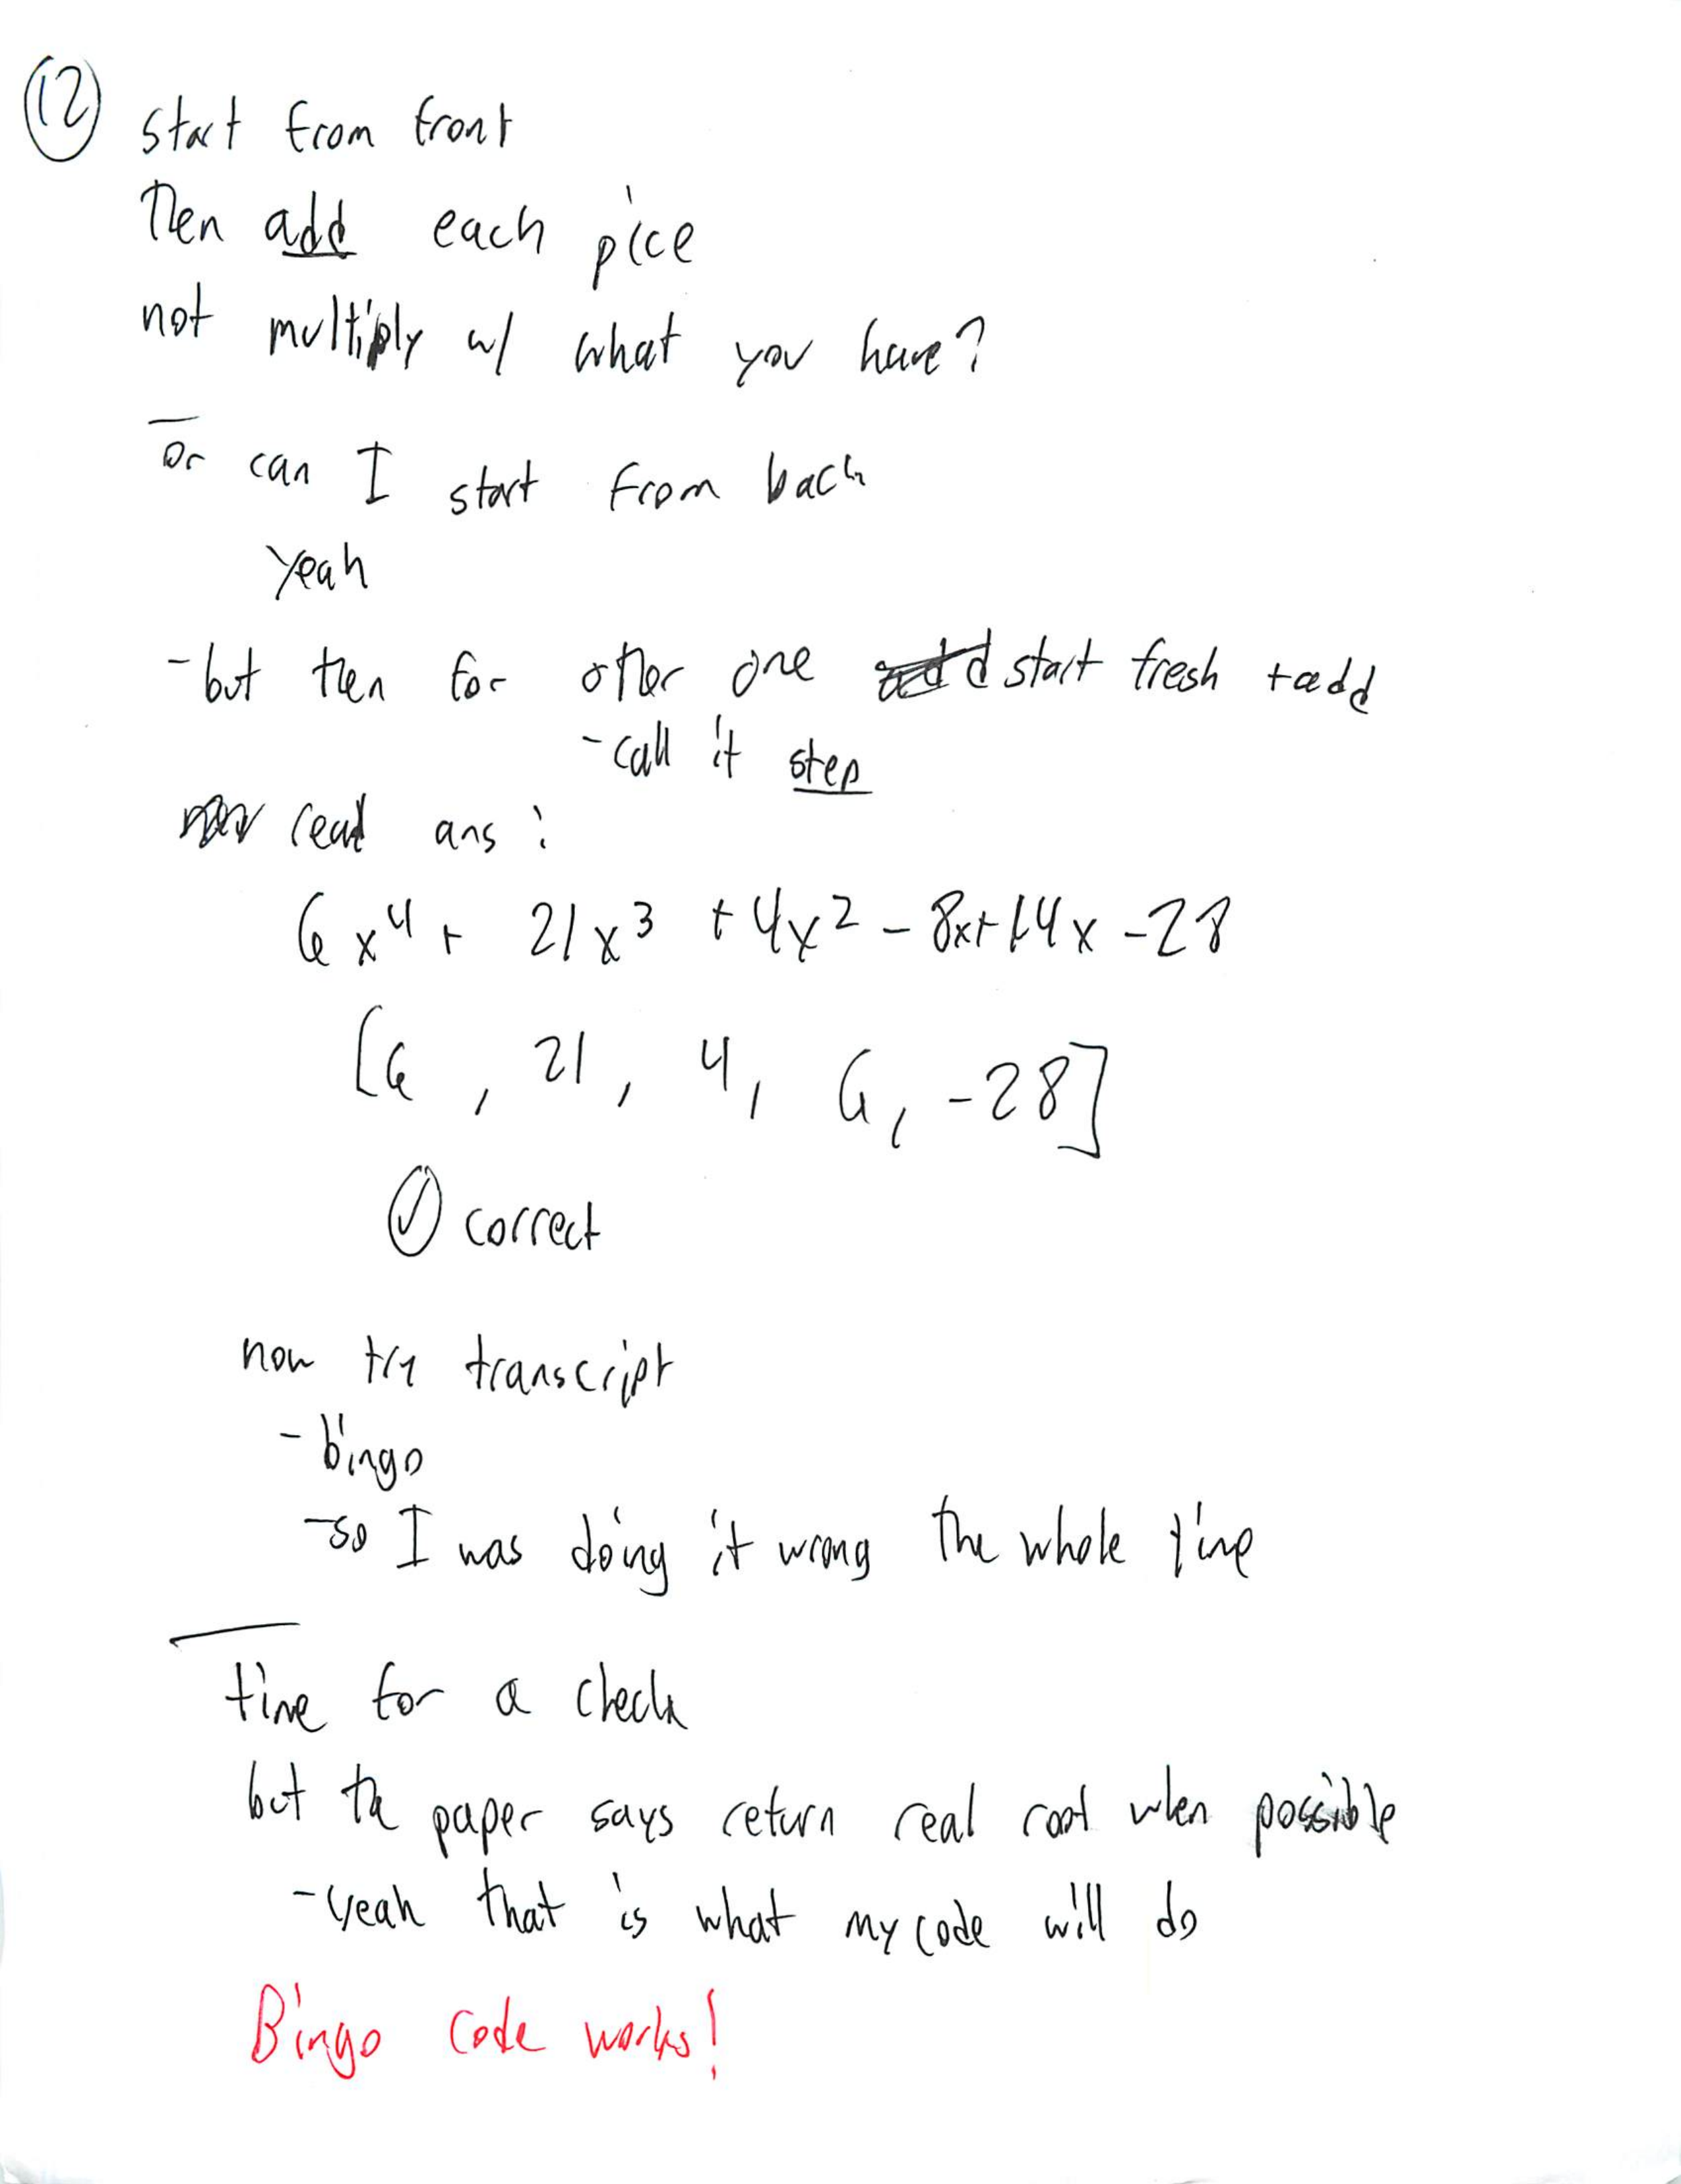 12
start from front
Then add each pice
not multiply w/ what you have?
or can I start from back
yeah
- but then for other one start fresh + add
- call it step
real ans:
6x⁴ + 21x³ + 4x² - 8x + 14x - 28
[6, 21, 4, 6, -28]
✓ correct
now try transcript
- bingo
- so I was doing it wrong the whole time
time for a check
but the paper says return real root when possible
- yeah that is what my code will do
Bingo code works!